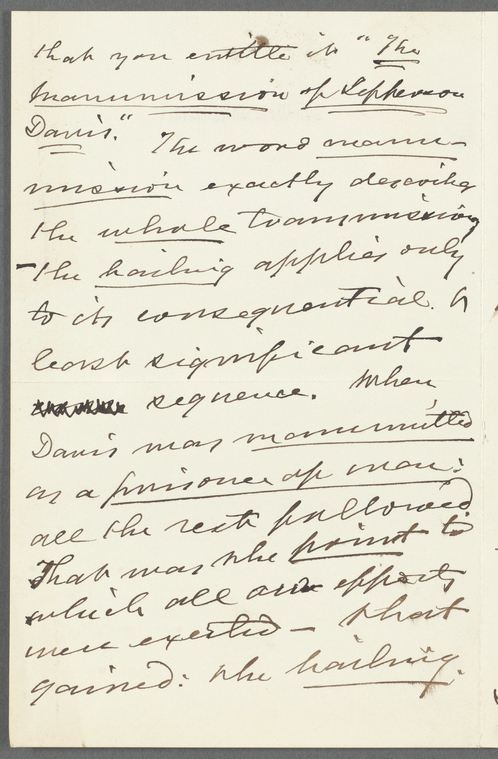 that you entitle it "The
Manumission of Jefferson
Davis." The word manu-
mission exactly describes
the whole transmission,
the bailing applies only
to its consequential &
least significant
sequence. When,
Davis was manumitted
as a prisoner of war:
all the rest followed.
That was the point to
which all our efforts
were exerted — that
gained: the bailing.